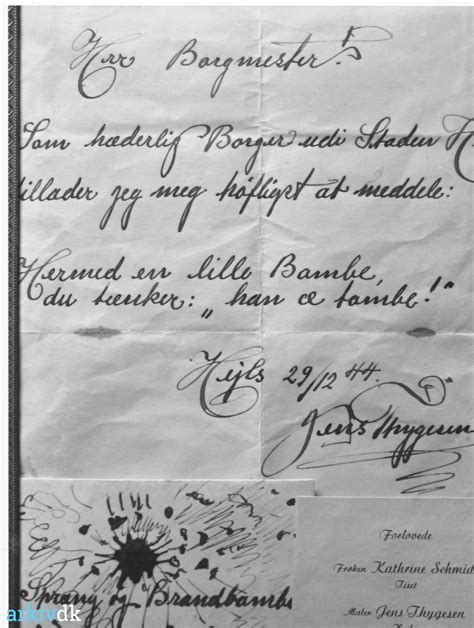 Hrr Borgmester!
Som hæderlig Borger udi Staden H
tillader jeg meg høfligst at meddele:
Hermed en lille Bambe,
du tænker: „han æ tambe!"
Hejls 29/12 44.
Jens Thygesen
Sprang og Brandbambe
Forlovede
Frøken Kathrine Schmidt
Tiset
Maler Jens Thygesen
arkivdk